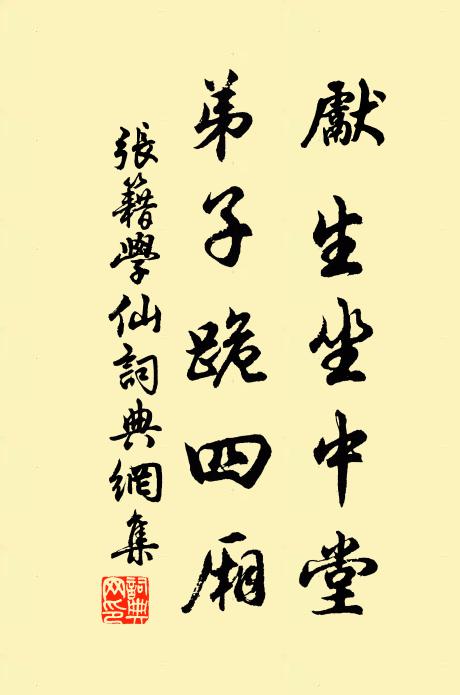 獻生坐中堂
弟子跪四廂
張籍學仙詞典網集
詞典网印